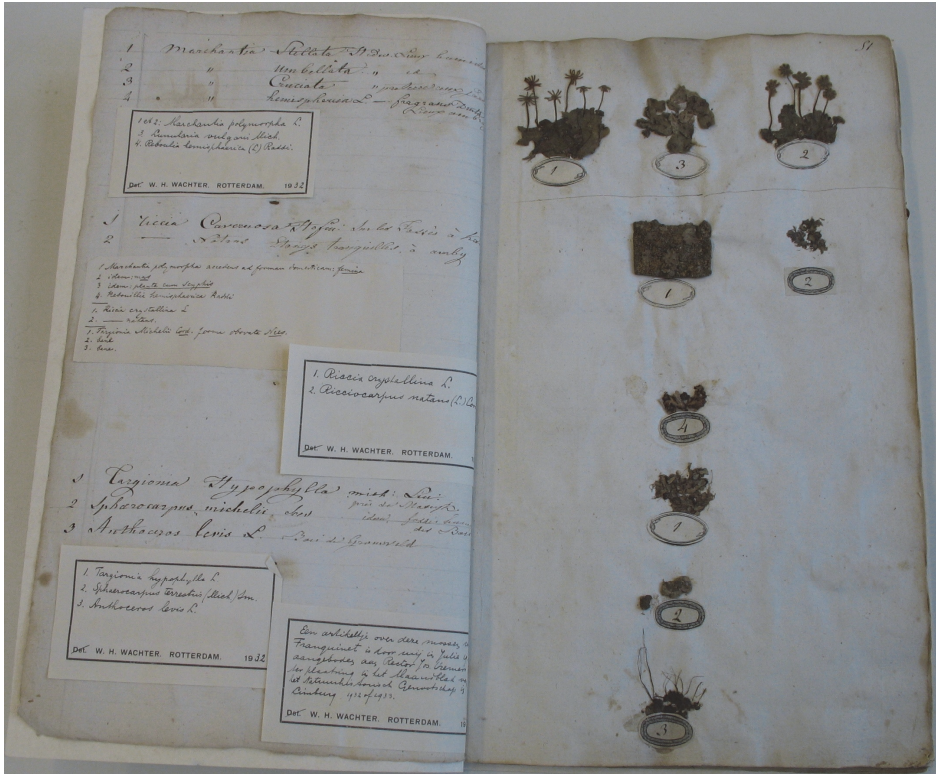 1 Marchantia Stellata
2 " umbellata " id
3 " Cruciata "
4 " hemispherica L. — fragrans
1 et 2: Marchantia polymorpha L.
3. Lunularia vulgaris Mich.
4. Reboulia hemisphaerica (L) Raddi.
Det. W. H. WACHTER. ROTTERDAM. 1932
1 Riccia Cavernosa Hofm: à
2 — Natans Etangs tranquilles, à
1 Marchantia polymorpha ad formam
2 idem: mas
3 idem: planta cum scyphis
4. Rebouillia hemisphaerica Raddi
1. Riccia crystallina L
2. — natans.
1. Targionia Michelii Cord. forma obovata Nees.
2.
3.
1. Riccia crystallina L.
2. Ricciocarpus natans (L)
Det. W. H. WACHTER. ROTTERDAM.
1 Targionia Hypophylla
2 Sphaerocarpus michelii
3 Anthoceros levis L.
1. Targionia hypophylla L
2. Sphaerocarpus terrestris (Mich.) Sm.
3. Anthoceros levis L.
Det. W. H. WACHTER. ROTTERDAM. 1932
Een artikeltje over deze mossen
Franquinet is door mij in Julie
aangeboden aan Rector Jos. Cremers
ter plaatsing in het Maandblad
het Natuurhistorisch Genootschap
Limburg 1932 of 1933.
Det. W. H. WACHTER. ROTTERDAM.
51
1
3
2
1
2
4
1
2
3